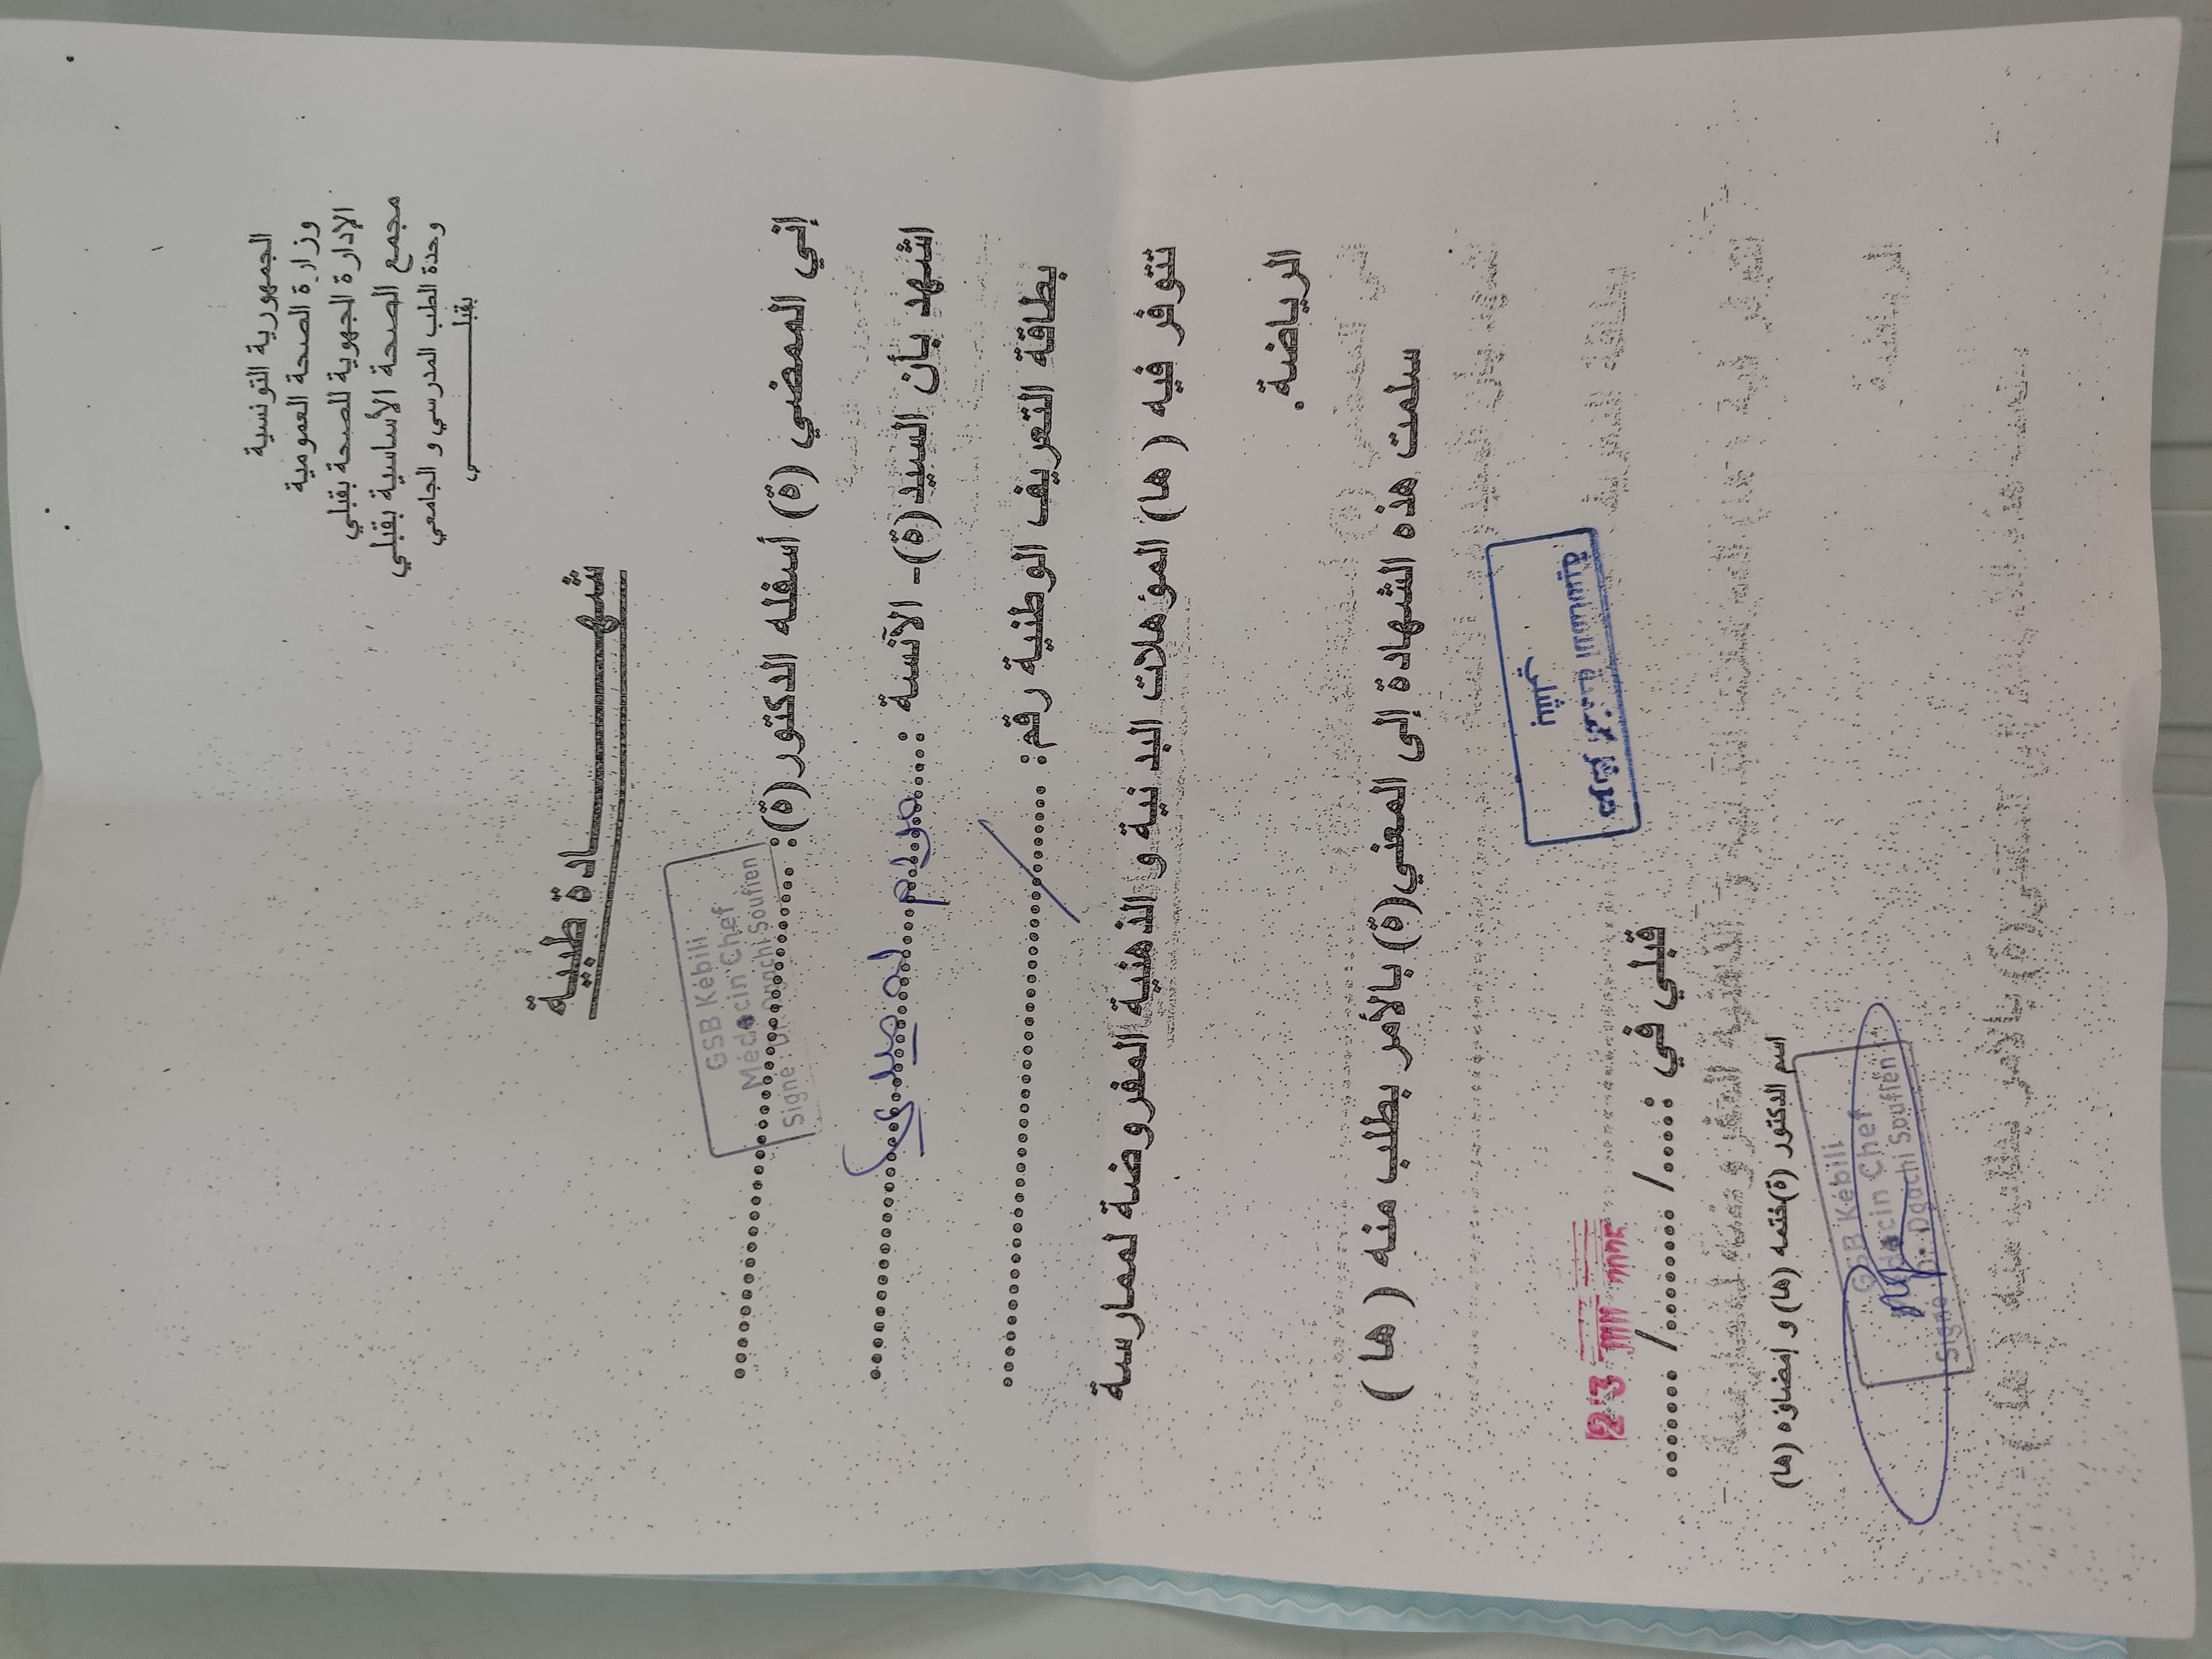 الجمهورية التونسية
وزارة الصحة العمومية
الإدارة الجهوية للصحة بقبلي
مجمع الصحة الأساسية بقبلي
وحدة الطب المدرسي و الجامعي
بقبلـــــــــي
شهـــــــادة طبية
إني الممضي (ة) أسفله الدكتور(ة):
GSB Kébili
Médecin Chef
Signé : Dr. Dgachi Soufien
اشهد بأن السيد(ة)- الآنسة : مريم
بطاقة التعريف الوطنية رقم:
تتوفر فيه ( ها) المؤهلات البدنية و الذهنية المفروضة لممارسة
الرياضة.
سلمت هذه الشهادة إلى المعني(ة) بالأمر بطلب منه ( ها )
قبلي في :...../......../.......
23
اسم الدكتور (ة)ختمه (ها) و إمضاؤه (ها)
GSB Kébili
Médecin Chef
Signé : Dr. Dgachi Soufien